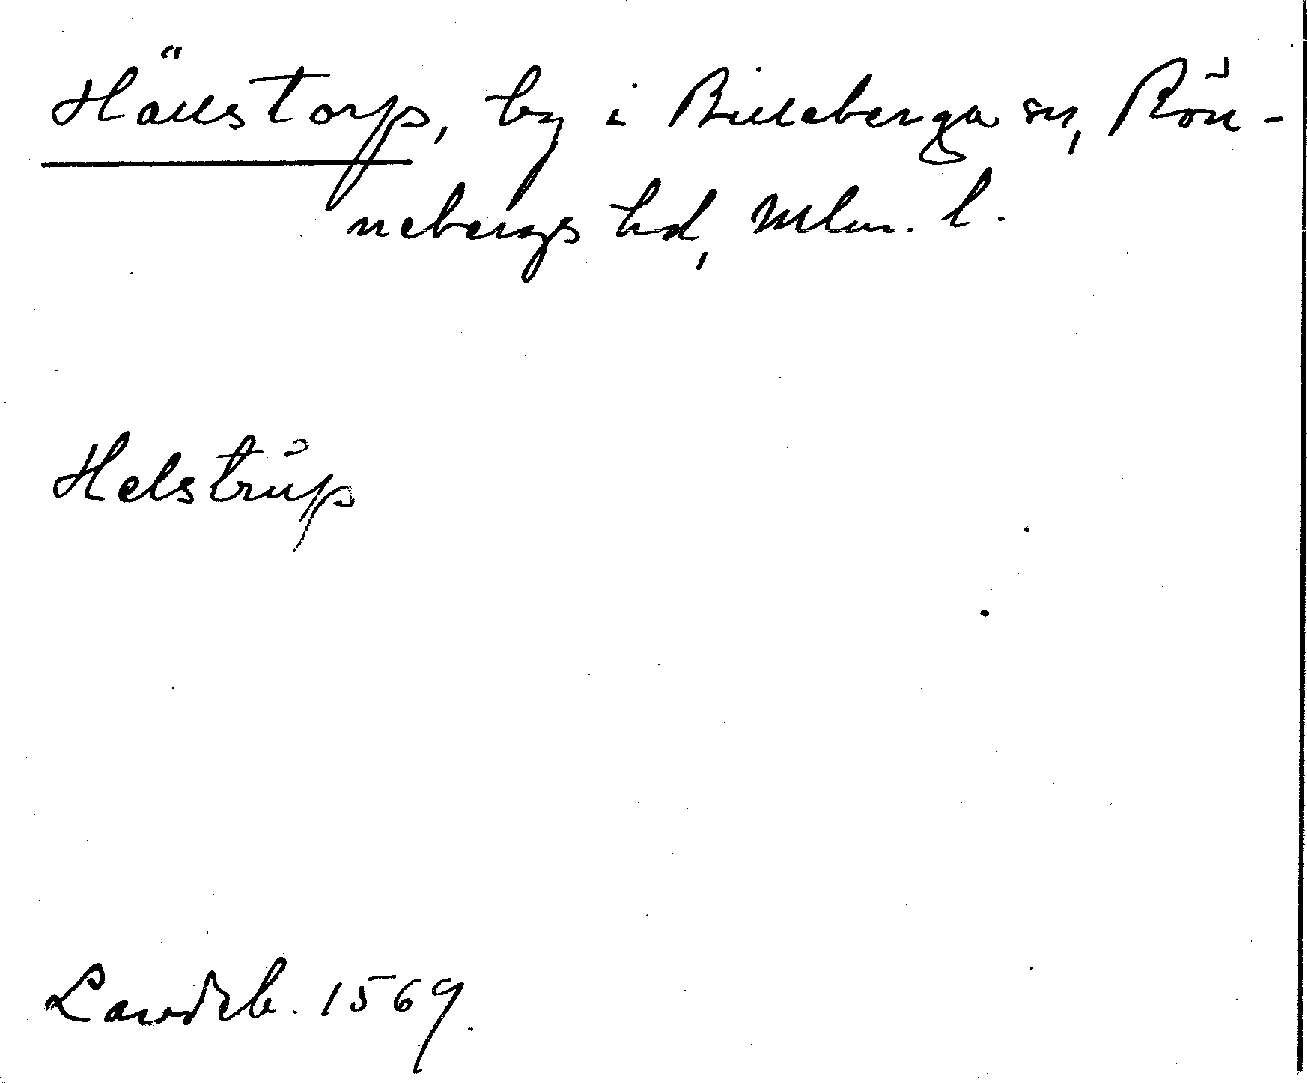 Hällstorp, by i Billeberga sn, Rön-
nebergs hd, Mlm. l.
Helstrup
Landeb. 1569.